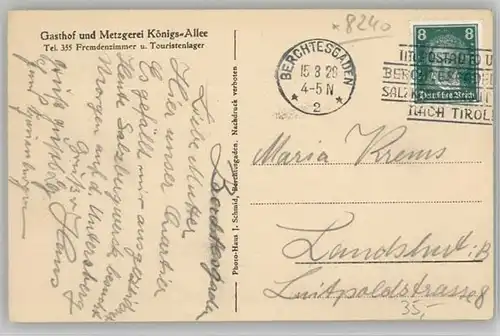 Gasthof und Metzgerei Königs-Allee
Tel. 355 Fremdenzimmer u. Touristenlager
Berchtesgaden
Liebe Mutter
Hier unser Quartier
Es gefällt mir ausgezeichnet
Heute Salzbergwerk besucht
Morgen auf d. Untersberg
Gruß
Hans
Photo-Haus J. Schmid, Berchtesgaden. Nachdruck verboten
*8240
BERCHTESGADEN
15 3 29
4-5 N
* 2 *
8
8
Deutsches Reich
BERCHTESGADEN
NACH TIROL
Maria Krems
Landshut i. B
Luitpoldstrasse 8
35,-